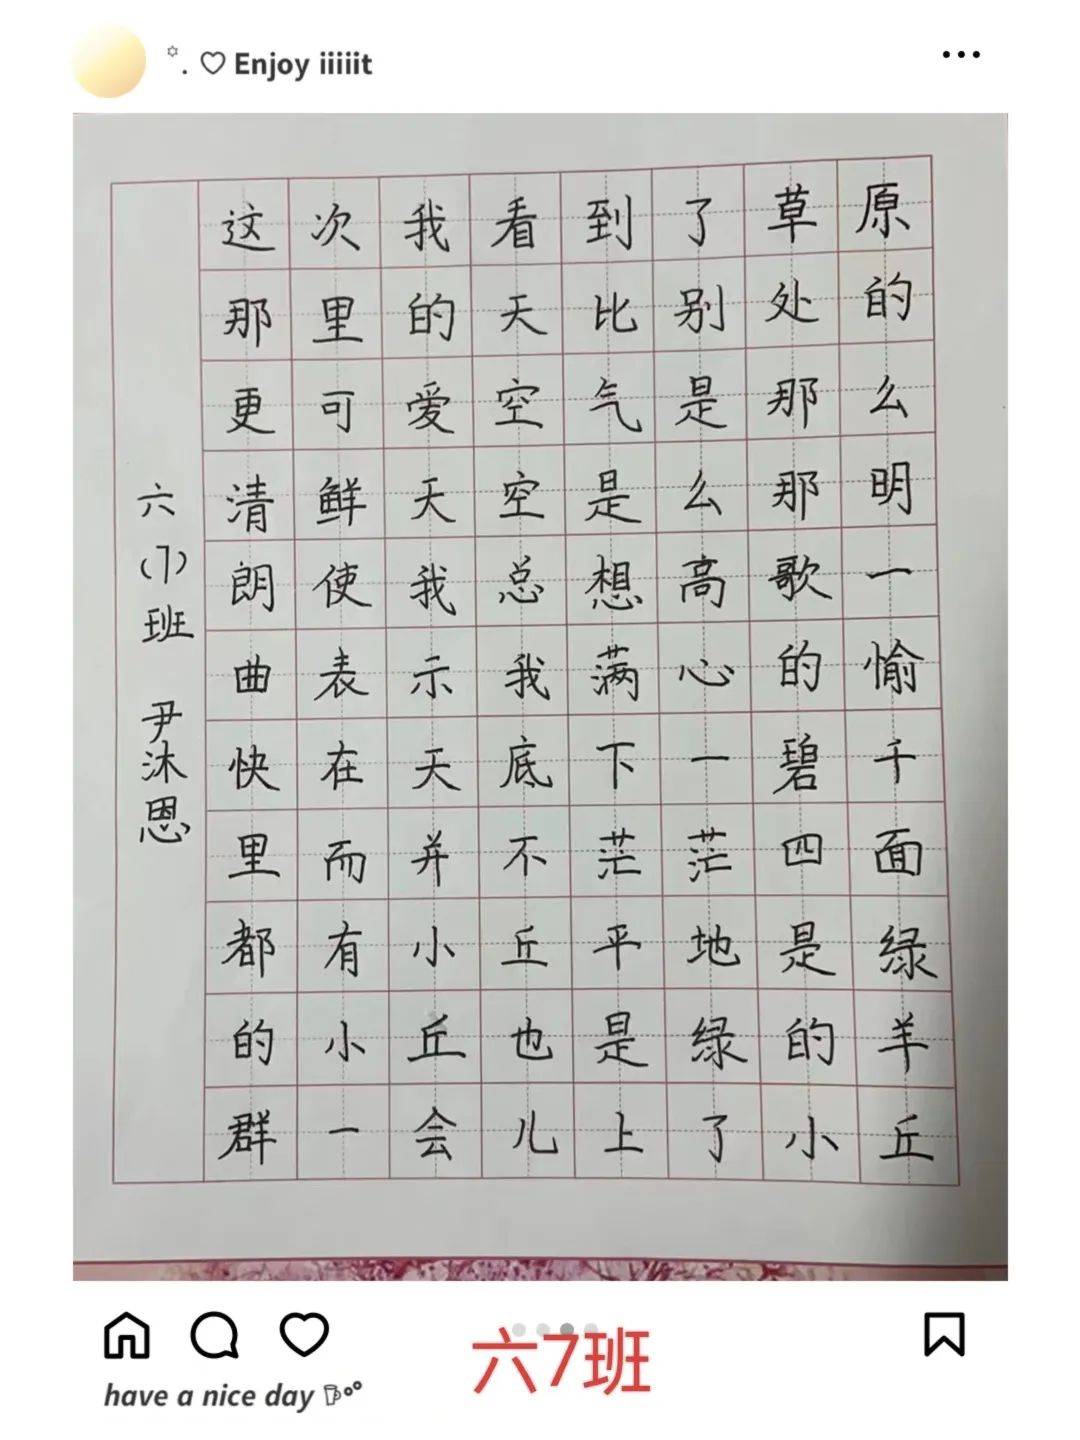 Enjoy iiiiit
这次我看到了草原
那里的天比别处的
更可爱空气是那么
清鲜天空是么那明
朗使我总想高歌一
曲表示我满心的愉
快在天底下一碧千
里而并不茫茫四面
都有小丘平地是绿
的小丘也是绿的羊
群一会儿上了小丘
六(7)班 尹沐恩
六7班
have a nice day